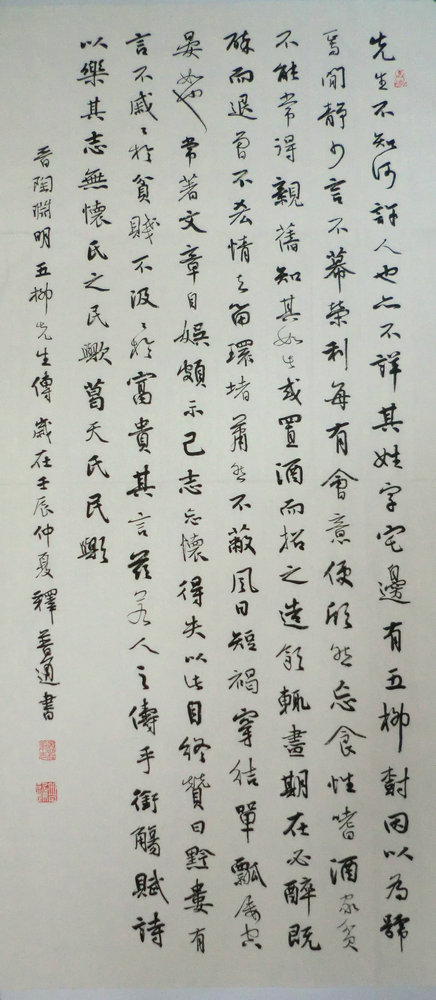 先生不知何許人也亦不詳其姓字宅邊有五柳樹因以為號
焉閒靜少言不慕榮利每有會意便欣然忘食性嗜酒家貧
不能常得親舊知其如此或置酒而招之造飲輒盡期在必醉既
醉而退曾不吝情去留環堵蕭然不蔽風日短褐穿結單瓢屢空
晏如也常著文章自娛頗示己志忘懷得失以此自終贊曰黔婁有
言不戚〻於貧賤不汲〻於富貴其言茲若人之儔乎銜觴賦詩
以樂其志無懷氏之民歟葛天氏民歟
晉陶淵明五柳先生傳歲在壬辰仲夏釋普通書